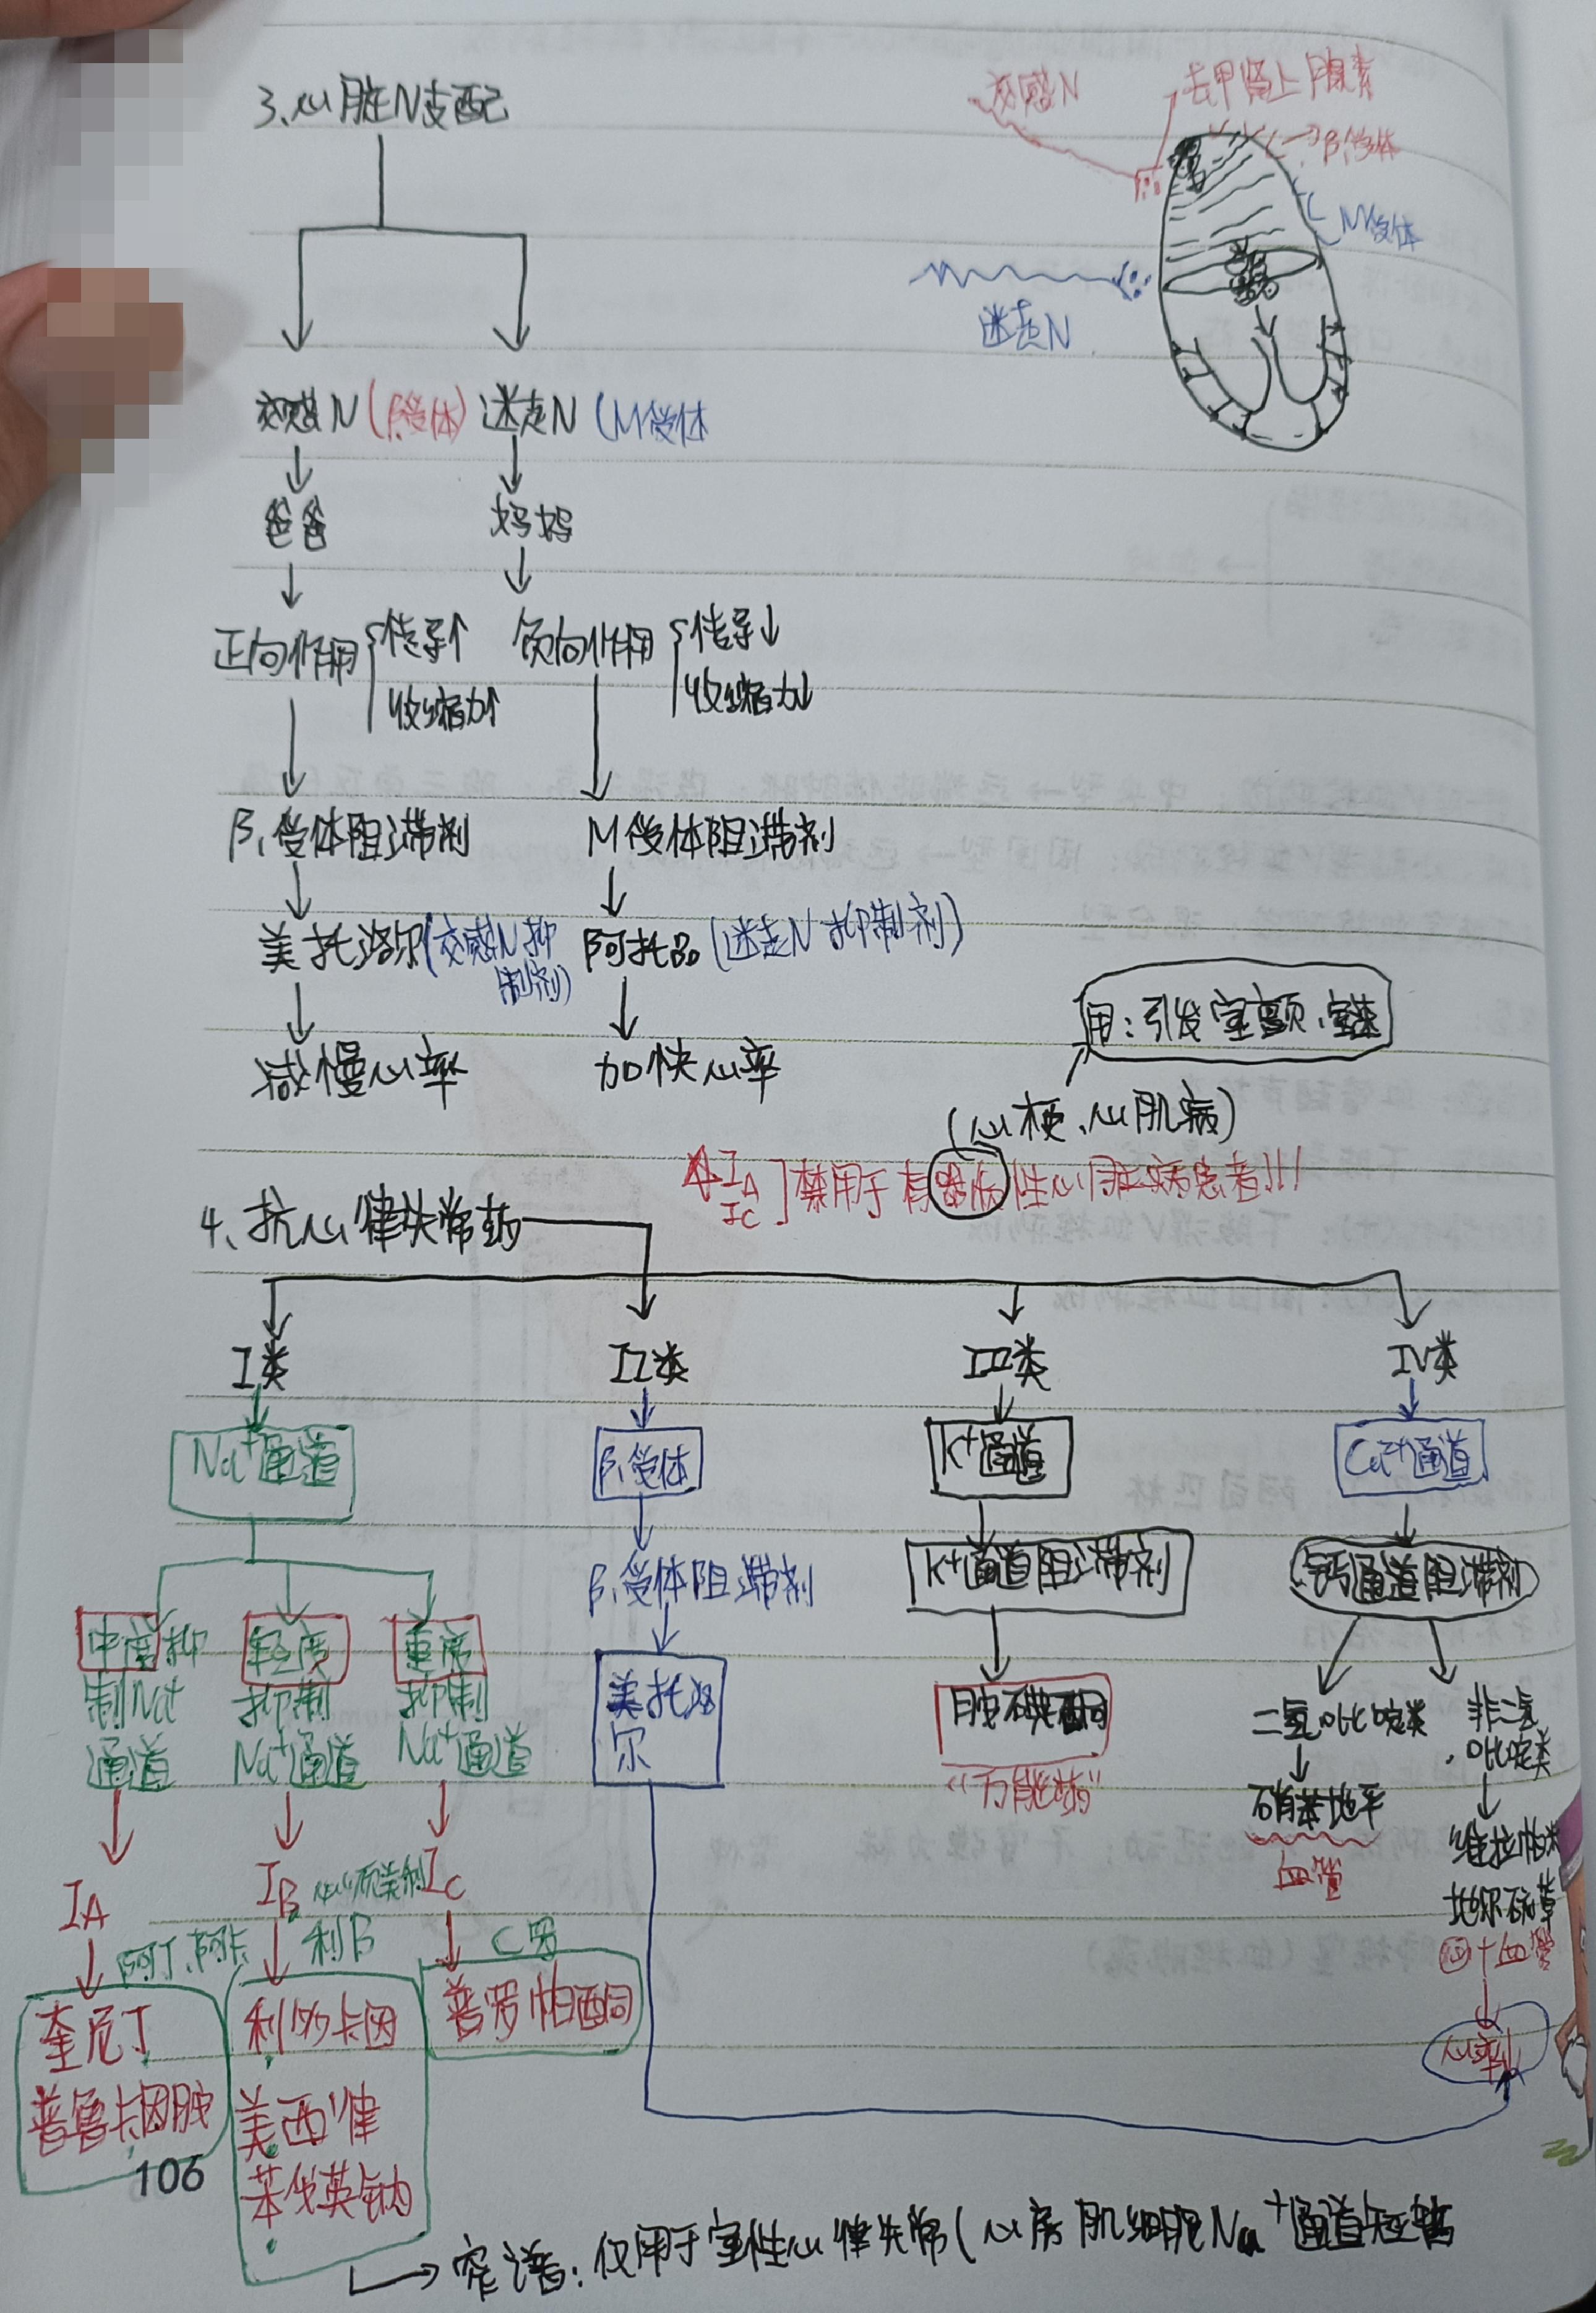 3、心脏N支配
交感N
去甲肾上腺素
β1受体
M受体
迷走N
交感N(β1受体) 迷走N (M受体
爸爸 妈妈
正向作用 传导↑ 收缩力↑
负向作用 传导↓ 收缩力↓
β1受体阻滞剂 M受体阻滞剂
美托洛尔(交感N抑制剂) 阿托品(迷走N抑制剂)
减慢心率 加快心率
用:引发室颤、室速
(心梗、心肌病)
IA
IC ]禁用于有器质性心脏病患者!!!
4、抗心律失常药
I类 II类 III类 IV类
Na⁺通道 β1受体 K⁺通道 Ca²⁺通道
β1受体阻滞剂 K⁺通道阻滞剂 钙通道阻滞剂
中度抑
制Na⁺
通道
轻度
抑制
Na⁺通道
重度
抑制
Na⁺通道
美托洛
尔
胺碘酮
“万能药”
二氢吡啶类
硝苯地平
血管
非二氢
吡啶类
维拉帕米
地尔硫䓬
心+血管
心率↓
IA IB IC
阿丁、阿卡
利B
C罗
奎尼丁
普鲁卡因胺
利多卡因
美西律
苯妥英钠
普罗帕酮
106
窄谱:仅用于室性心律失常(心房肌细胞Na⁺通道短暂